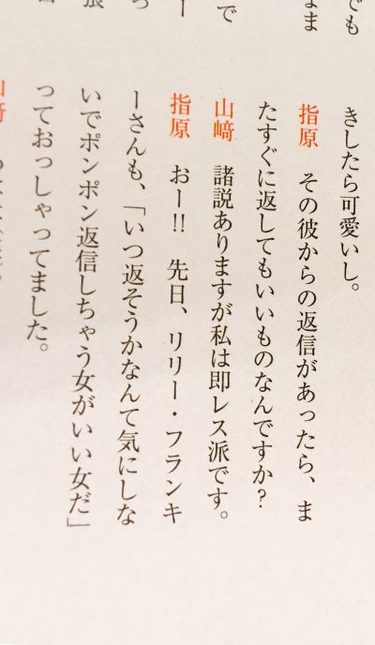 でも
まま
で
ー
きしたら可愛いし。
指原　その彼からの返信があったら、ま
たすぐに返してもいいものなんですか?
山﨑　諸説ありますが私は即レス派です。
指原　おー!!　先日、リリー・フランキ
ーさんも、「いつ返そうかなんて気にしな
いでポンポン返信しちゃう女がいい女だ」
っておっしゃってました。